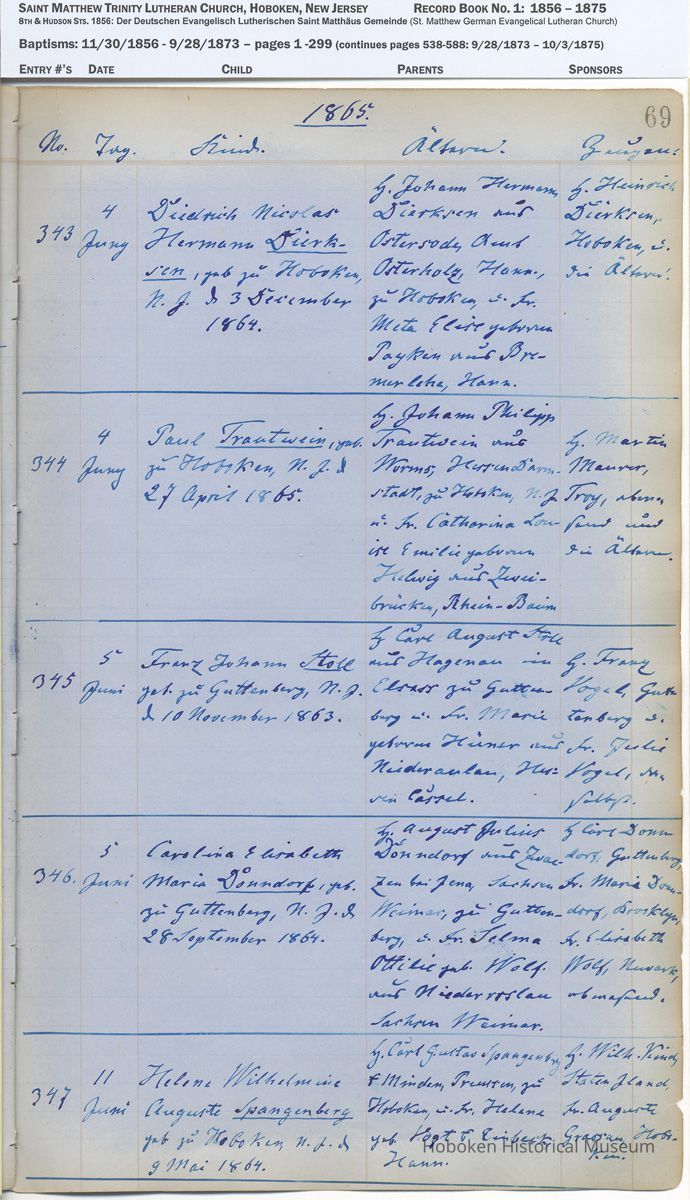 SAINT MATTHEW TRINITY LUTHERAN CHURCH, HOBOKEN, NEW JERSEY RECORD BOOK NO. 1: 1856 – 1875
8TH & HUDSON STS. 1856: Der Deutschen Evangelisch Lutherischen Saint Matthäus Gemeinde (St. Matthew German Evangelical Lutheran Church)
Baptisms: 11/30/1856 - 9/28/1873 – pages 1 -299 (continues pages 538-588: 9/28/1873 – 10/3/1875)
ENTRY #'S DATE CHILD PARENTS SPONSORS
1865.
69
No. Tag. Kind. Ältern. Zeugen.
343
4
Juny
Diedrich Nicolas
Hermann Dierk-
sen, geb zu Hoboken,
N. J. d 3 December
1864.
H. Johann Hermann
Dierksen aus
Ostersode, Amt
Osterholz, Hann.,
zu Hoboken, u. Fr.
Meta Elise geboren
aus Bre-
merlehe, Hann.
H. Heinrich
Dierksen,
Hoboken, u.
die Ältern.
344
4
Juny
Paul Trautwein, geb.
zu Hoboken, N. J. d
27 April 1865.
H. Johann Philipp
Trautwein aus
Worms, Hessen Darm-
stadt, zu Hoboken, N. J.
u. Fr. Catharina Lou-
ise Emilie geboren
Helwig aus Zwei-
brücken, Rhein-Baiern
H. Martin
Maurer,
Troy, abwe-
send und
die Ältern.
345
5
Juni
Franz Johann Stoll
geb. zu Guttenberg, N. J.
d 10 November 1863.
H Carl August Stoll
aus Hagenau im
Elsass zu Gutten-
berg u. Fr. Marie
geboren Hüner aus
Niederaulau, Hes-
sen Cassel.
H. Franz
Vogel, Gut-
tenberg u.
Fr. Julie
Vogel, da-
selbst.
346.
5
Juni
Carolina Elisabeth
Maria Dönndorf, geb.
zu Guttenberg, N. J. d
28 September 1864.
H. August Julius
Dönndorf aus Zwae-
zen bei Jena, Sachsen
Weimar, zu Gutten-
berg, u. Fr. Selma
Ottilie geb. Wolf.
aus Niederroslau
Sachsen Weimar.
H Carl Donn-
dorf, Guttenberg,
Fr. Maria Donn-
dorf, Brooklyn,
Fr. Elisabeth
Wolf, Newark,
abwesend.
347
11
Juni
Helene Wilhelmine
Auguste Spangenberg
geb zu Hoboken, N. J. d
9 Mai 1864.
H. Carl Gustav Spangenberg
Minden, Preussen, zu
Hoboken, u. Fr. Helene
geb. Vogt Einbeck
Hann.
H. Wilh.
Staten Island,
Fr. Auguste
Hobo-
ken.
Hoboken Historical Museum